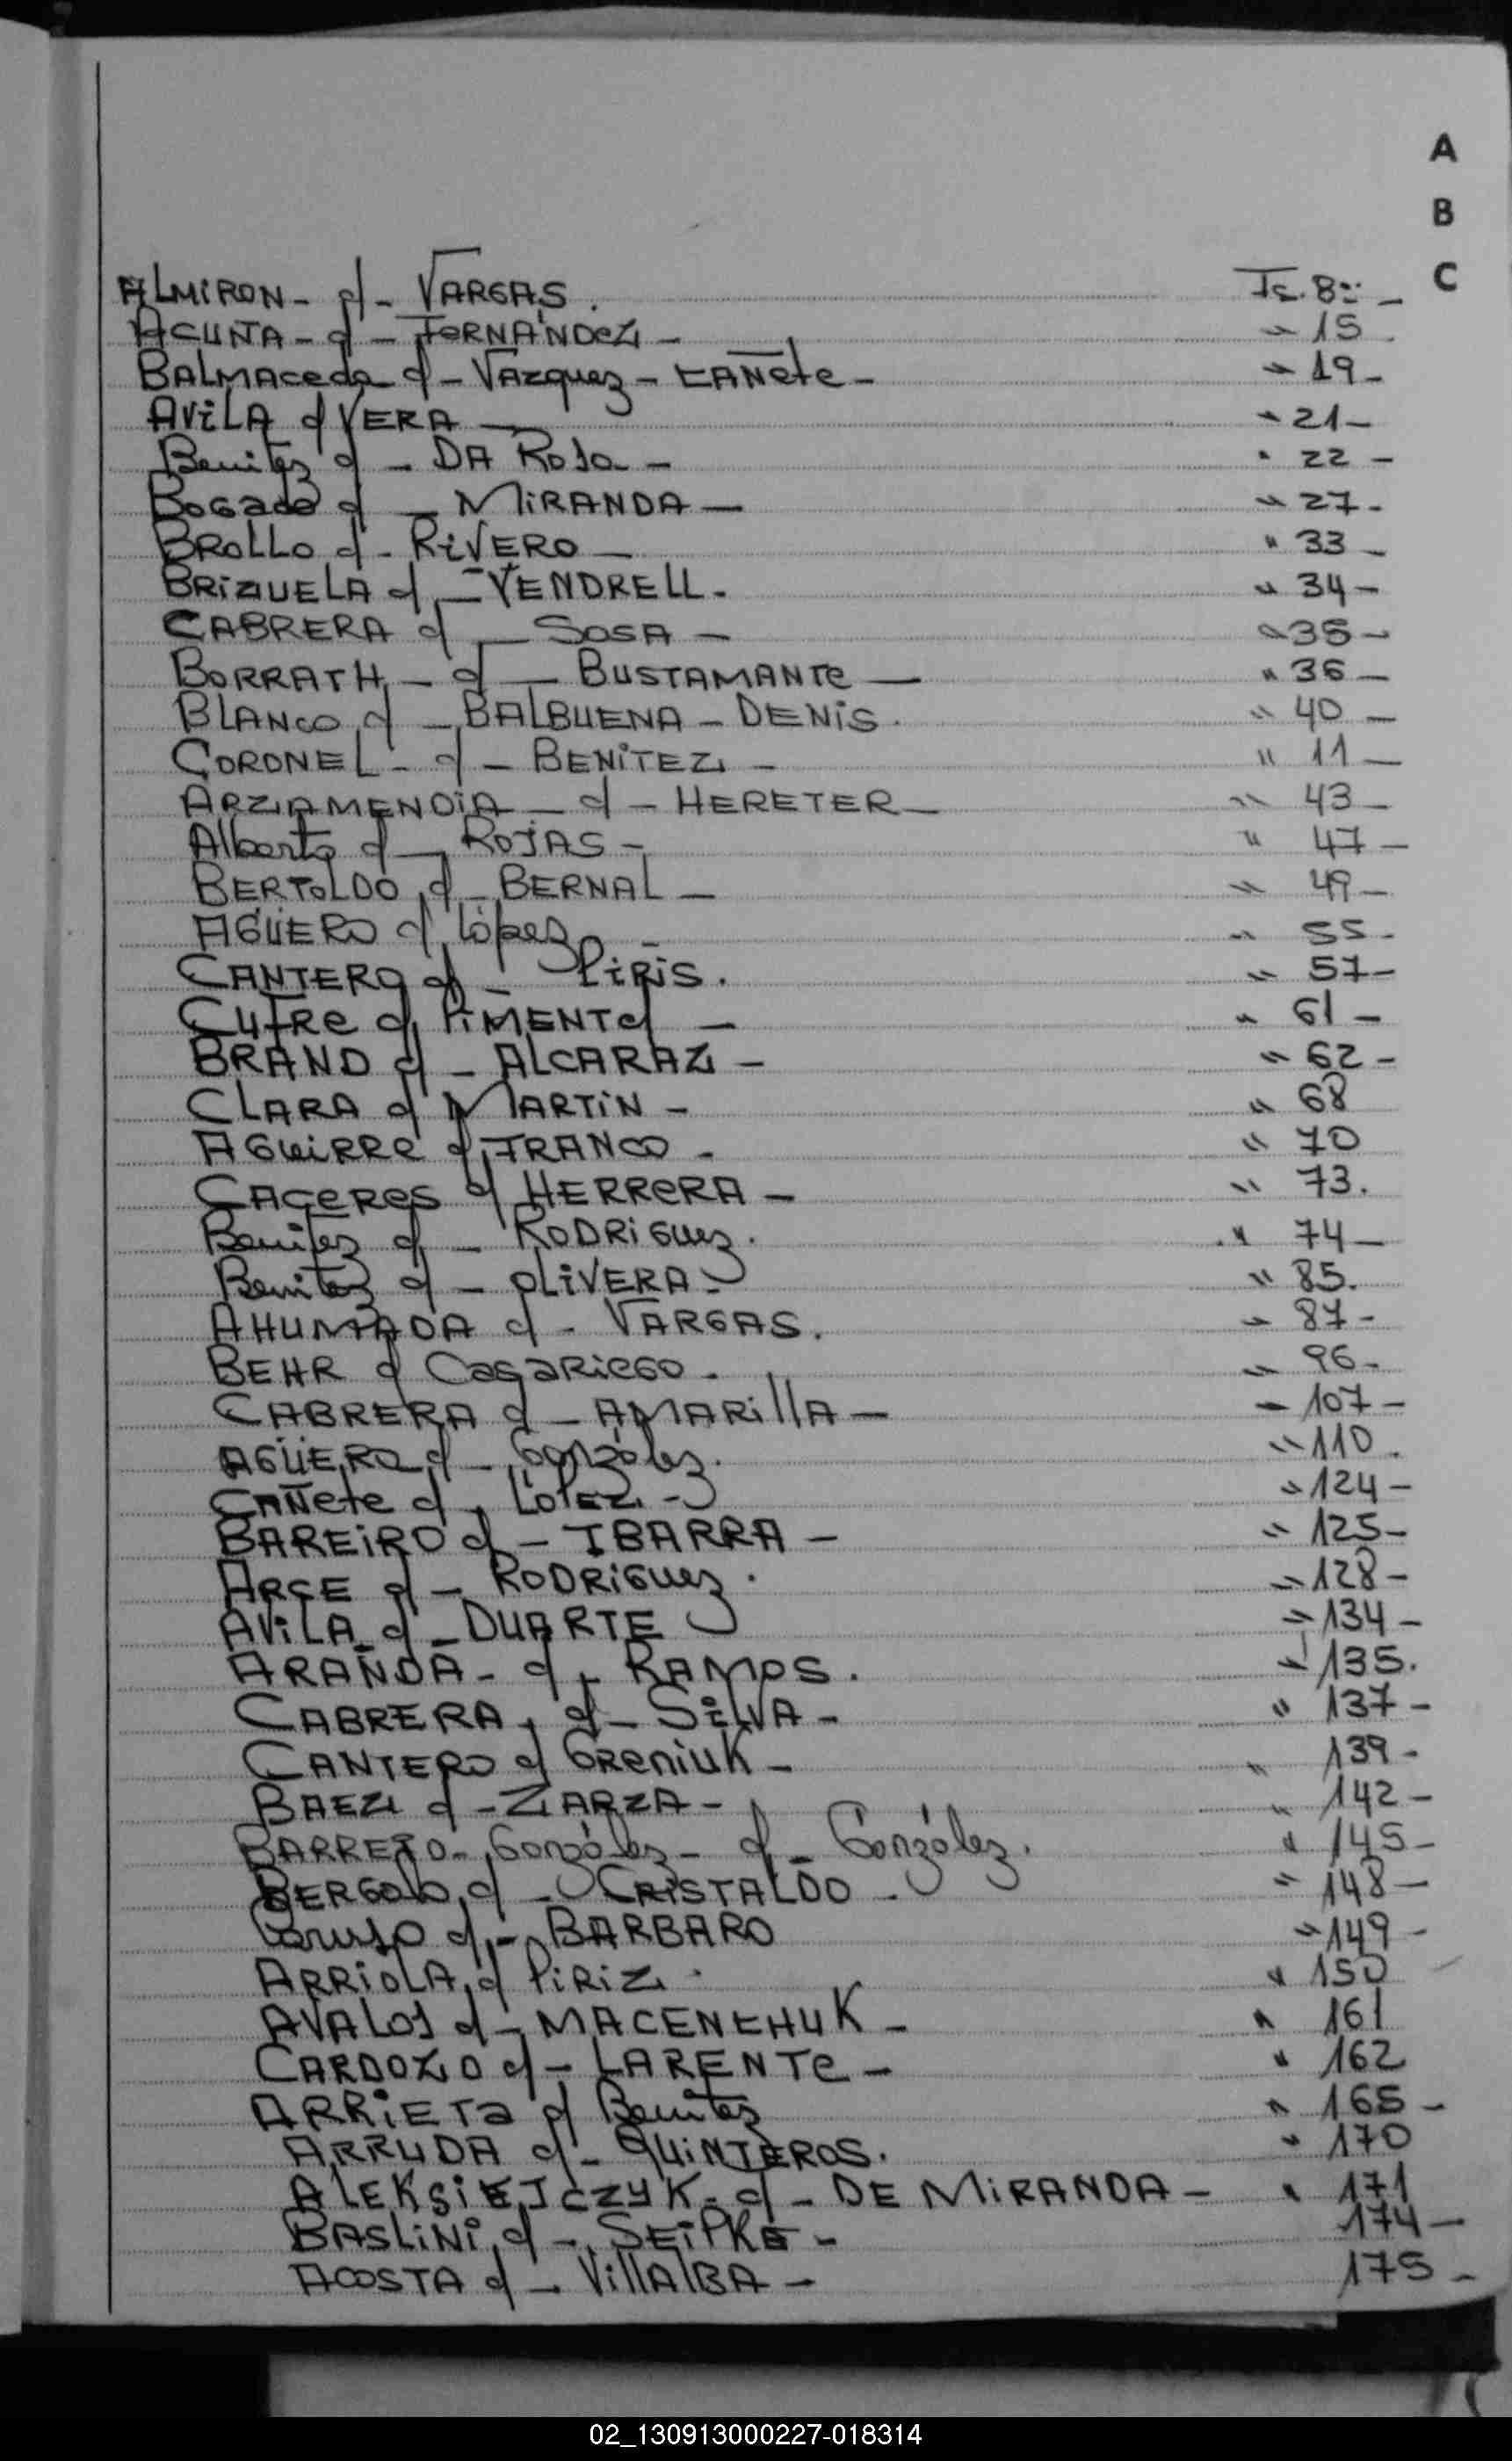 A
B
C
ALMIRON - c/ - VARGAS. Fs. 8 -
ACUÑA - c/ - FERNÁNDEZ - " 15
BALMACEDA c/ - VAZQUEZ - CAÑETE - " 19 -
AVILA c/ VERA - " 21 -
Benitez c/ - DA Rosa - " 22 -
BOGADO c/ - MIRANDA - " 27 -
BROLLO c/ - RIVERO - " 33 -
BRIZUELA c/ - VENDRELL - " 34 -
CABRERA c/ - SOSA - " 35 -
BORRATH - c/ - BUSTAMANTE - " 36 -
BLANCO c/ - BALBUENA - DENIS. " 40 -
CORONEL - c/ - BENITEZ - " 11 -
ARZAMENDIA - c/ - HERETER - " 43 -
Alberto c/ - ROJAS - " 47 -
BERTOLDO c/ - BERNAL - " 49 -
AGÜERO c/ López - " 55 -
CANTERO c/ - PIRIS. " 57 -
CUFRE c/ PIMENTEL - " 61 -
BRAND c/ - ALCARAZ - " 62 -
CLARA c/ MARTIN - " 68
AGUIRRE c/ FRANCO - " 70
CACERES c/ HERRERA - " 73.
Benitez c/ - RODRIGUEZ. " 74 -
Benitez c/ - OLIVERA - " 85.
AHUMADA c/ - VARGAS. " 87 -
BEHR c/ CASARIEGO. " 96 -
CABRERA c/ - AMARILLA - " 107 -
AGÜERO c/ - González. " 110.
CAÑETE c/ LÓPEZ - " 124 -
BAREIRO c/ - IBARRA - " 125 -
ARCE c/ - RODRIGUEZ. " 128 -
AVILA c/ - DUARTE " 134 -
ARANDA - c/ - RAMOS. " 135.
CABRERA, c/ - SILVA - " 137 -
CANTERO c/ GRENIUK - " 139 -
BAEZ c/ - ZARZA - " 142 -
BARRETO - González - c/ - González. " 145 -
BERGOLO c/ - CRISTALDO - " 148 -
Caruso c/ - BARBARO " 149 -
ARRIOLA c/ PIRIZ. " 150
AVALOS c/ - MACENCHUK - " 161
CARDOZO c/ - LARENTE - " 162
ARRIETA c/ Benitez " 165 -
ARRUDA c/ - QUINTEROS. " 170
ALEKSIEJCZYK - c/ - DE MIRANDA - " 171
BASLINI c/ - SEIPKE - 174 -
ACOSTA c/ - VILLALBA - 175 -
02_130913000227-018314